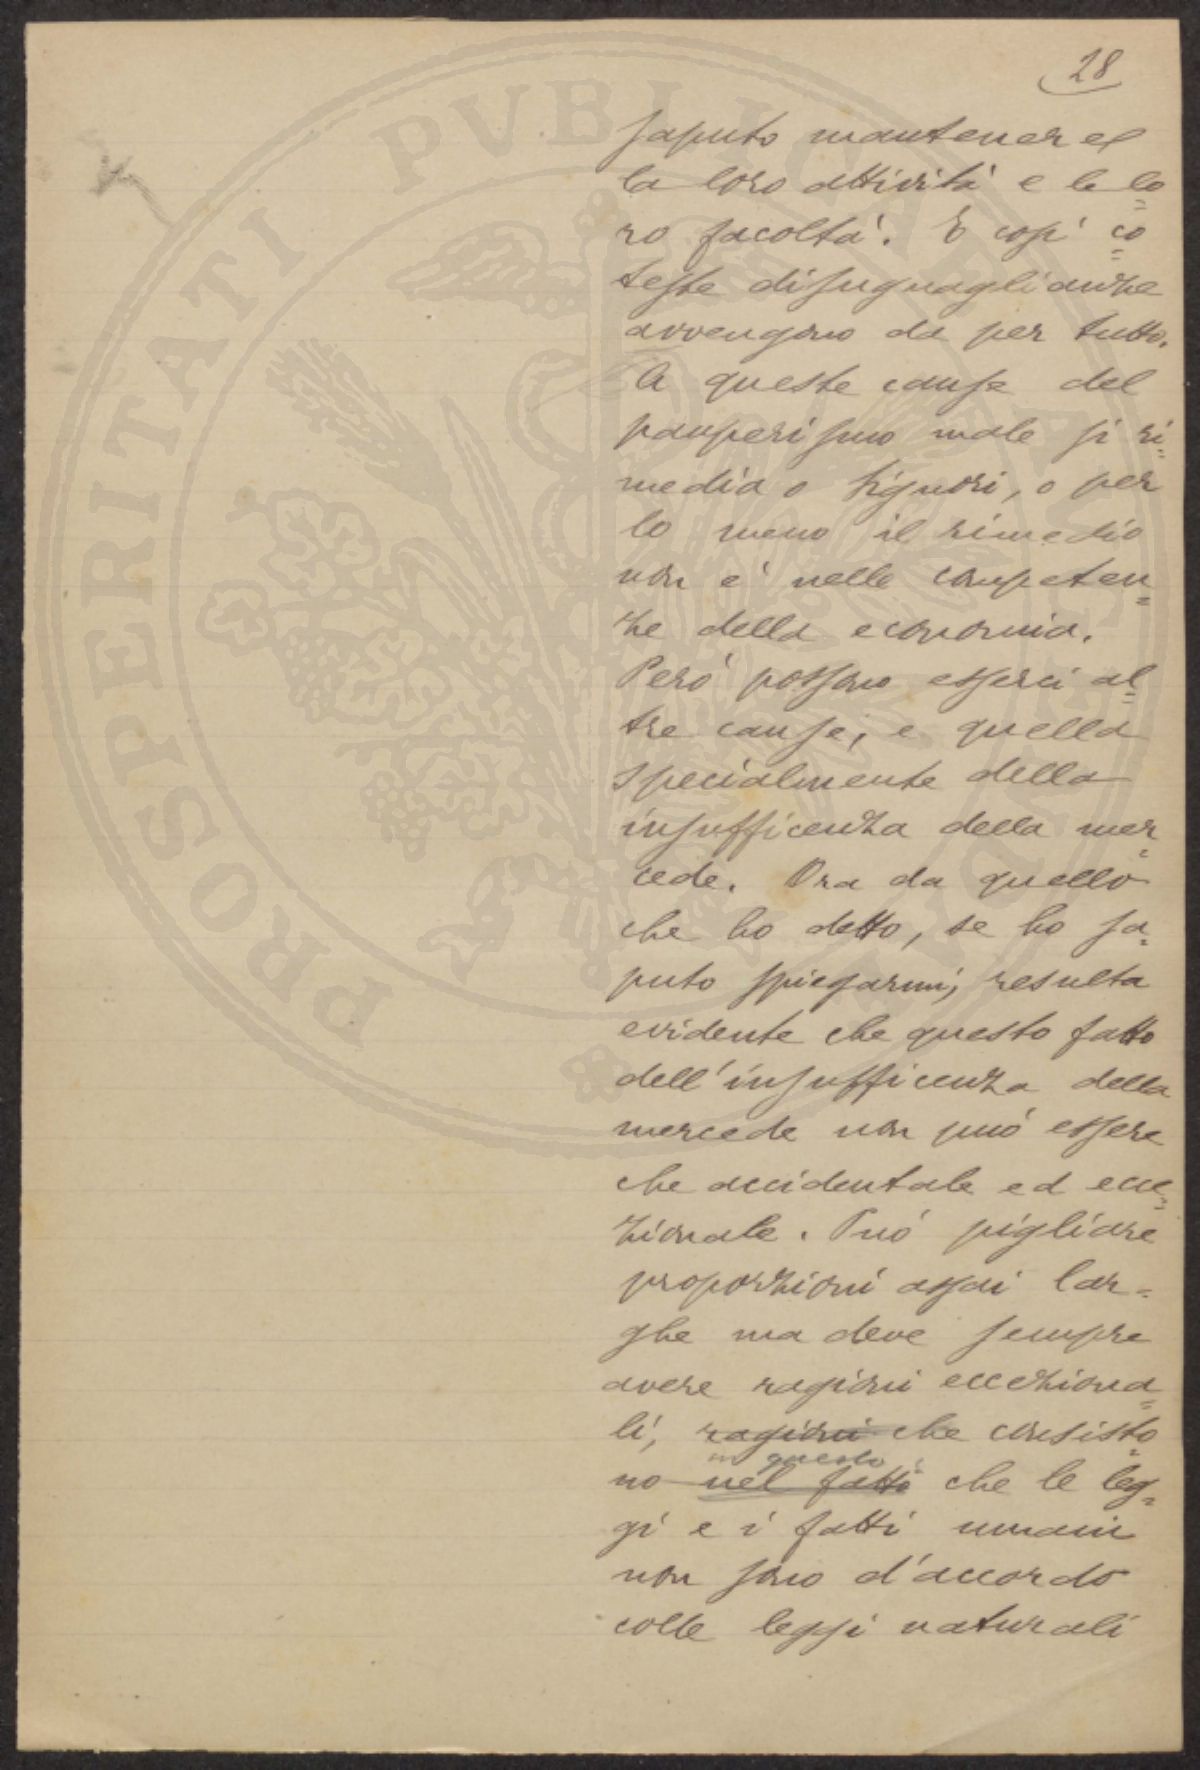 28
saputo mantenere
la loro attività e le lo=
ro facoltà. E così co=
teste disuguaglianze
avvengono da per tutto.
A queste cause del
pauperismo male si ri=
media o signori, o per
lo meno il rimedio
non è nelle competen=
ze della economia.
Però possono esserci al=
tre cause, e quella
specialmente della
insufficenza della mer=
cede. Ora da quello
che ho detto, se ho sa=
puto spiegarmi, resulta
evidente che questo fatto
dell'insufficenza della
mercede non può essere
che accidentale ed ecce=
zionale. Può pigliare
proporzioni assai lar=
ghe ma deve sempre
avere ragioni ecceziona=
li, ragioni che consisto=
in questo
no nel fatto che le leg=
gi e i fatti umani
non sono d'accordo
colle leggi naturali
PROSPERITATI PVBLICAE